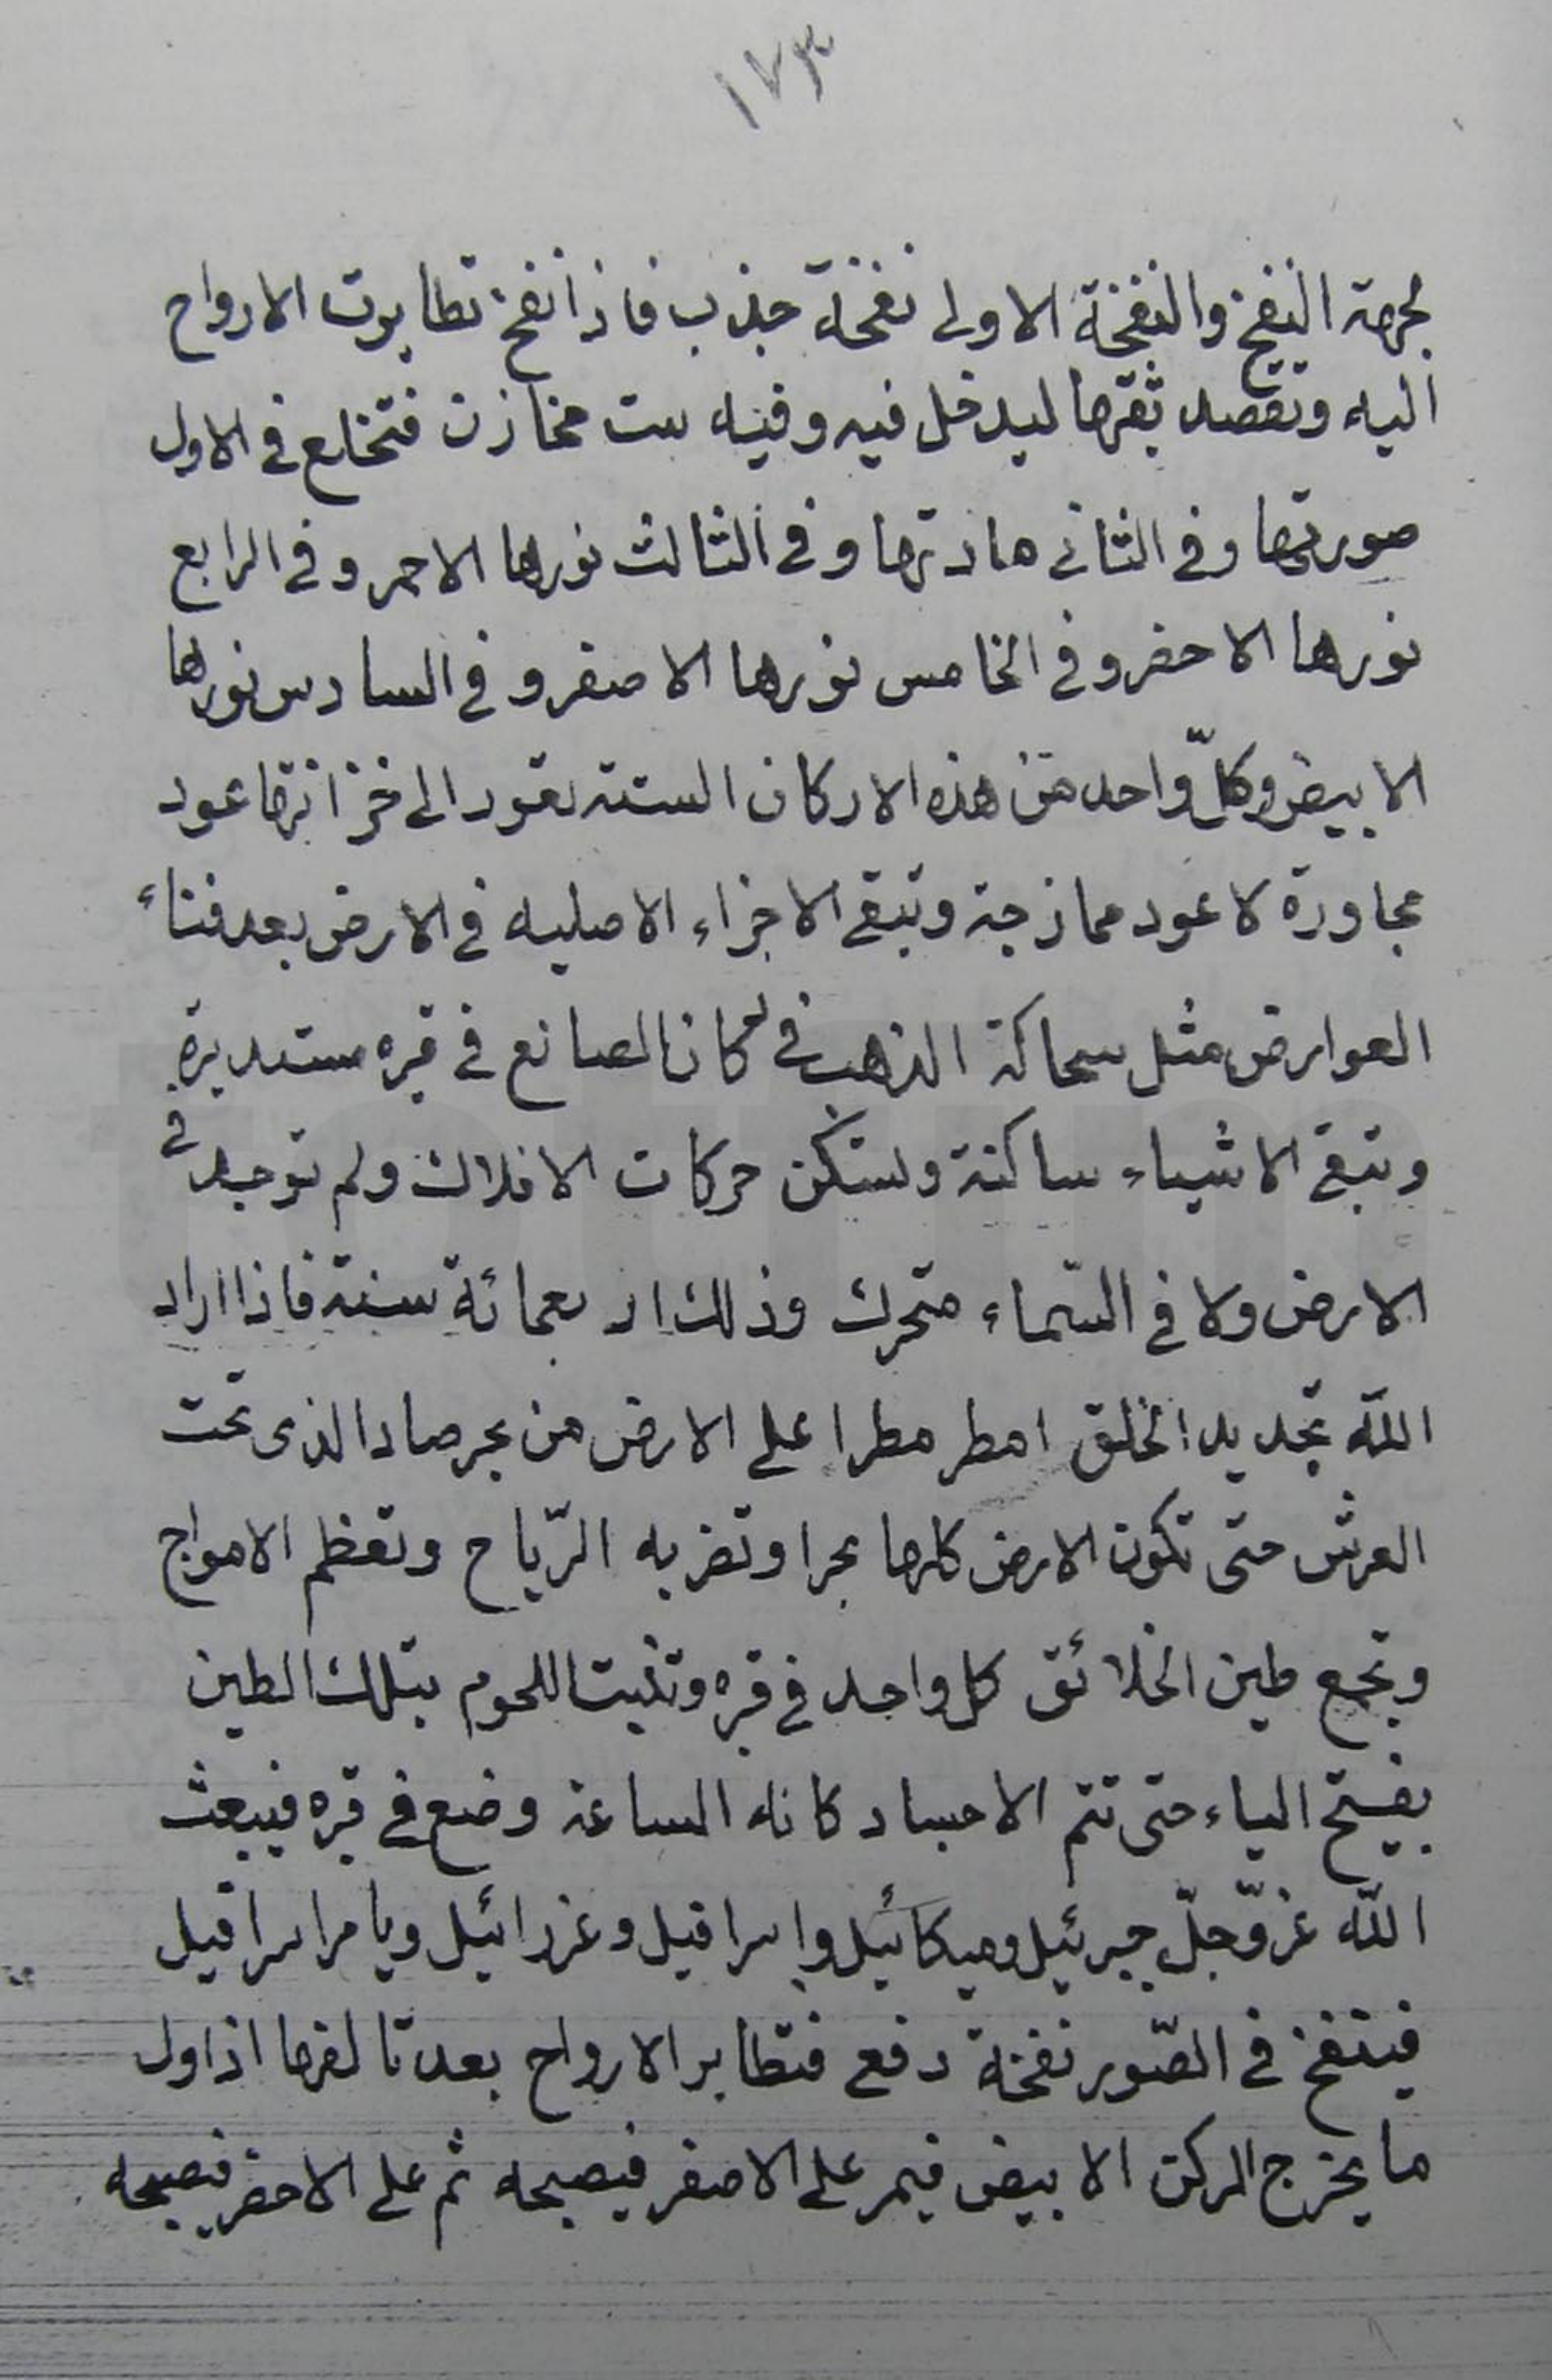 ١٧٣
لجهة النفخ والنفخة الاولى نفخة جذب فاذا نفخ تطايرت الارواح
اليه وتقصد ثقبها ليدخل فيه وفيه ست مخازن فتخلع في الاول
صورتها وفي الثاني مادتها وفي الثالث نورها الاحمر وفي الرابع
نورها الاخضر وفي الخامس نورها الاصفر وفي السادس نورها
الابيض وكلّ واحد من هذه الاركان الستة تعود الى خزانتها عود
مجاورة لا عود ممازجة وتبقى الاجزاء الاصليه في الارض بعد فناء
العوارض مثل سحاكة الذهب في دكان الصانع في قبره مستديرة
وتبقى الاشياء ساكنة وتسكن حركات الافلاك ولم توجد في
الارض ولا في السّماء متحرك وذلك اربعمائة سنة فاذا اراد
اللّه تجديد الخلق امطر مطرا على الارض من بحر صاد الذى تحت
العرش حتى تكون الارض كلها بحرا وتضربه الرّياح وتعظم الامواج
وتجمع طين الخلائق كل واحد في قبره وتنبت اللحوم بتلك الطين
بفتح الياء حتى تتم الاجساد كانه الساعة وضع في قبره فيبعث
اللّه عزّوجلّ جبرئيل وميكائيل واسرافيل وعزرائيل ويامر اسرافيل
فينفخ في الصّور نفخة دفع فتطاير الارواح بعد تالفها اذ اول
ما يخرج الركن الابيض فيمر على الاصفر فيصبحه ثم على الاخضر فيصبحه